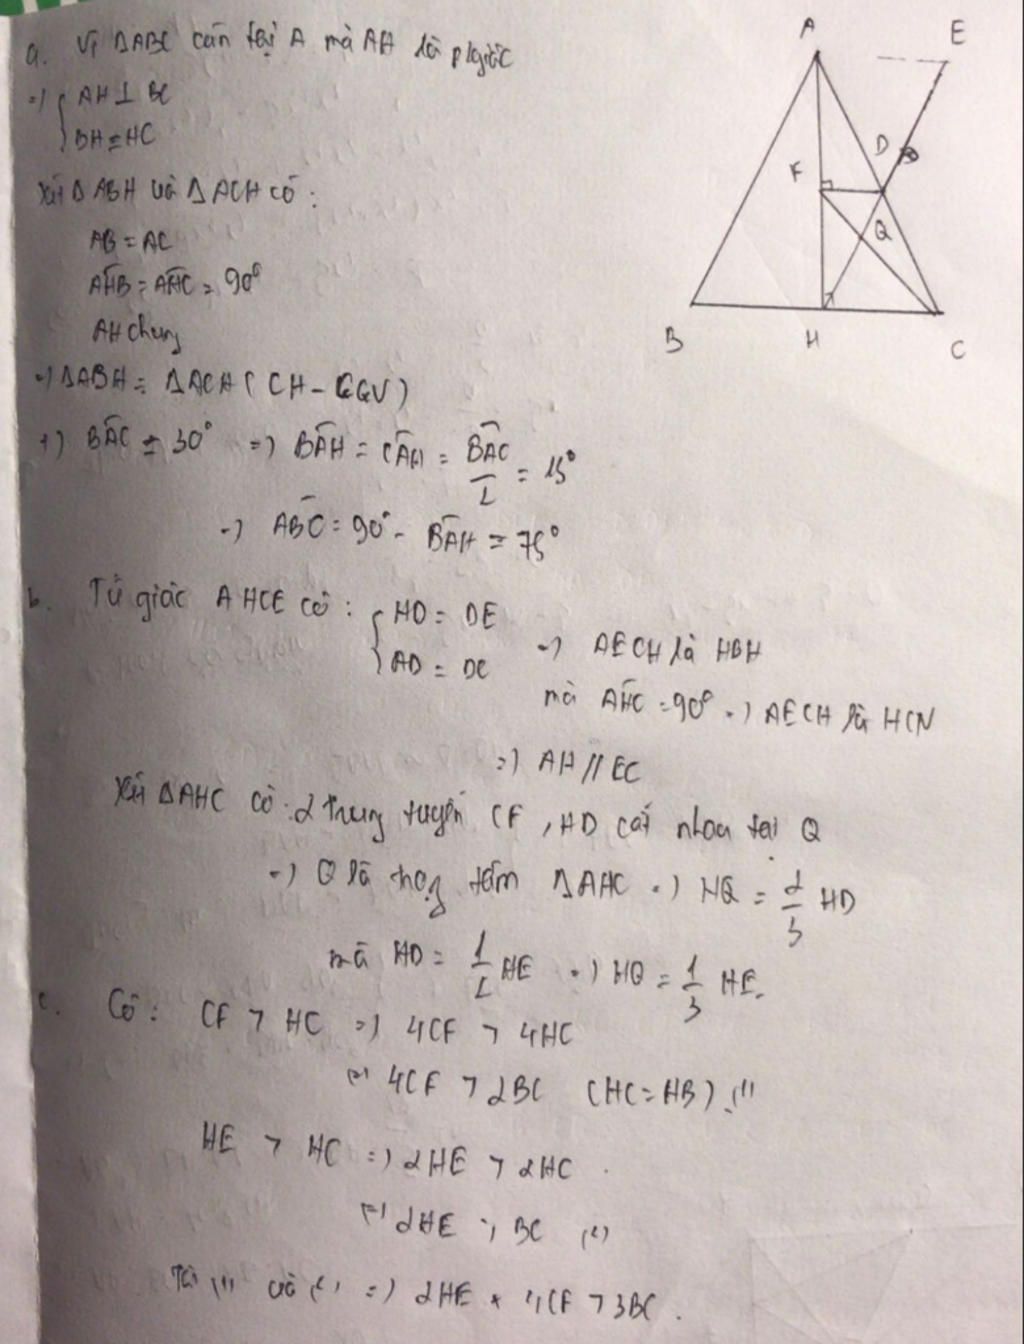 a. Vì ΔABC cân tại A mà AH là p/giác
=> { AH ⊥ BC
BH = HC
Xét ΔABH và ΔACH có:
AB = AC
AHB = AHC = 90°
AH chung
=> ΔABH = ΔACH (CH - CGV)
+) BAC = 30° => BAH = CAH = BAC/2 = 15°
=> ABC = 90° - BAH = 75°
b. Tứ giác AHCE có: { HD = DE
AD = DC => AECH là HBH
mà AHC = 90° => AECH là HCN
=> AH // EC
Xét ΔAHC có: 2 trung tuyến CF, HD cắt nhau tại Q
=> Q là trọng tâm ΔAHC => HQ = 2/3 HD
mà HD = 1/2 HE => HQ = 1/3 HE.
c. Có: CF > HC => 4CF > 4HC
<=> 4CF > 2BC (HC = HB) (1)
HE > HC => 2HE > 2HC
<=> 2HE > BC (2)
Từ (1) và (2) => 2HE + 4CF > 3BC.
A
E
D
F
Q
B
H
C